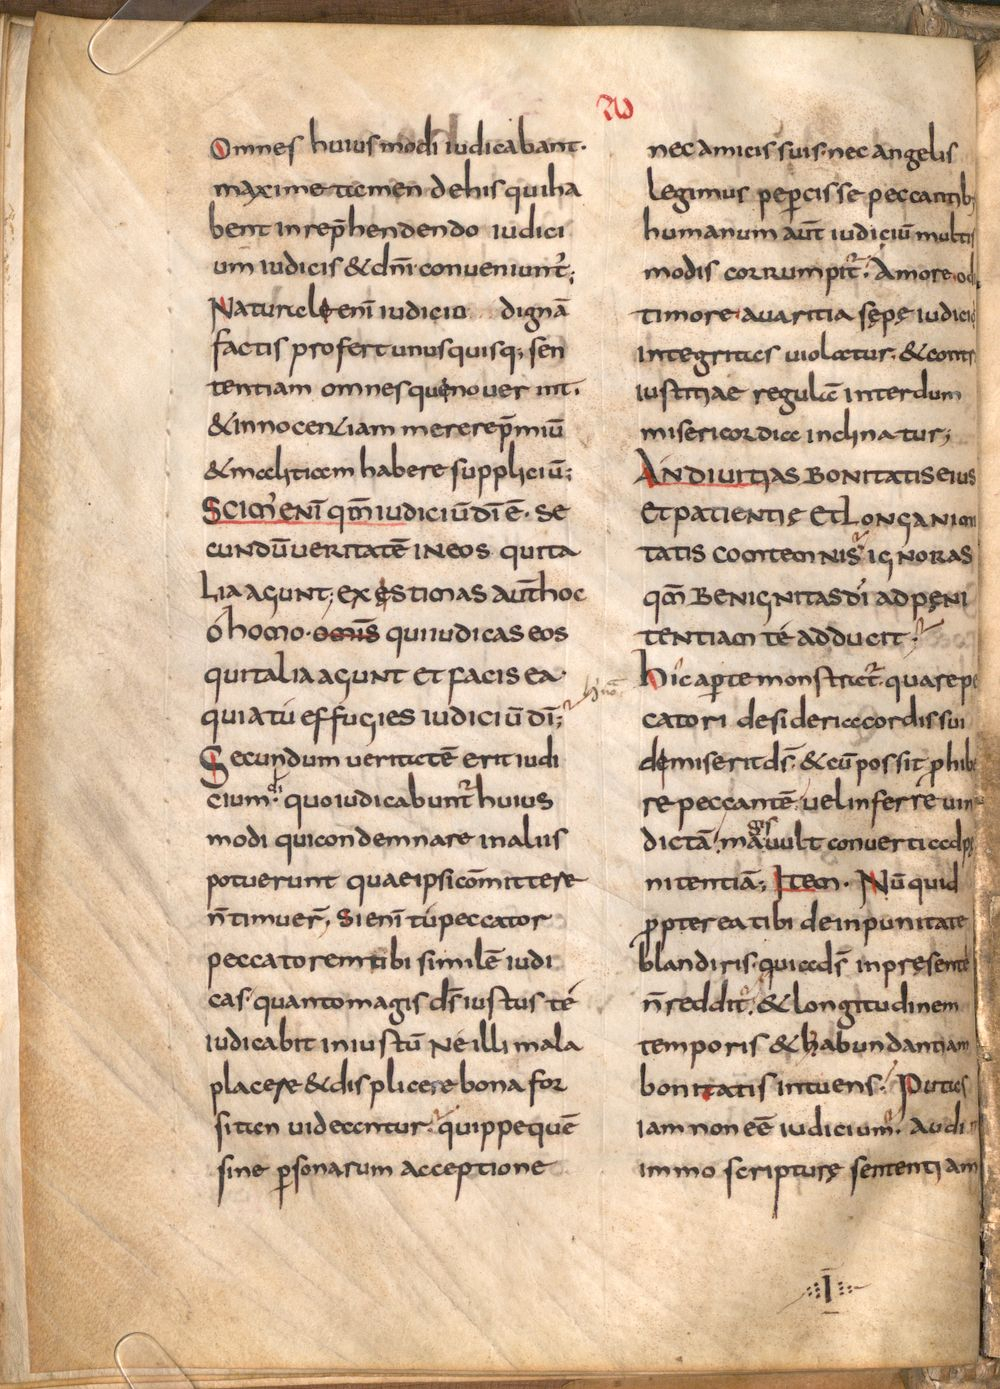 RO
Omnes huius modi iudicabant.
maxime tamen de his qui ha
bent in rep̄hendendo iudici
um iudicis & dn̄i conueniunt᷑;
Naturalę enī iudicio dignā
factis profert unusquisq; sen
tentiam omnesque nouer int.
& innocentiam mererep̄miū
& malitiam habere suppliciū;
Scim᾽ enī qm̄ iudiciū dī ē. se
cundū ueritatē in eos qui ta
lia agunt; exęstimas aūt hoc
ó homo. omīs qui iudicas eos
qui talia agunt et facis ea.
quia tú effugies iudiciū dī;
Secundum ueritatē erit iudi
cium. quo iudicabunt᷑ huius
modi qui condemnare in aliis
potuerunt quae ipsi cōmittere
n̄ timuer̄, Si enī tú peccator
peccatorem tibi similē iudi
cas. quanto magis ds̄ iustus té
iudicabit iniustū Ne illi mala
placere & displicere bona for
sitan uideantur. quippe quē
sine ꝑsonarum acceptione
nec amicis suis. nec angelis
legimus peꝑcisse peccantib;
humanum aūt iudiciū multis
modis corrumpit᷑. Amore od
timore auaritia sępę iudicii
integritas uiolatur. & contr
iustitiae regulā interdum
misericordia inclinatur;
An diuitias bonitatis eius
et patientię et longanimi
tatis contemnis ignoras
qm̄ benignitas dī ad pęni
tentiam té adducit.
Híc aꝑte monstrat᷑. quare pec
catori desideria cordis sui
demiserit ds̄. & cū possit ꝓhibe
re peccantē. uel inferre uin
dictā. mauult conuerti ad pę
nitentiā; Item. Nū quid
ꝓpterea tibi de inpunitate
blandiris. quia ds̄ in pręsenti
n̄ reddit. & longitudinem
temporis & habundantiam
bonitatis intuens. Putas
iam non eē iudicium. Audi
immo scripturę sententiam
I